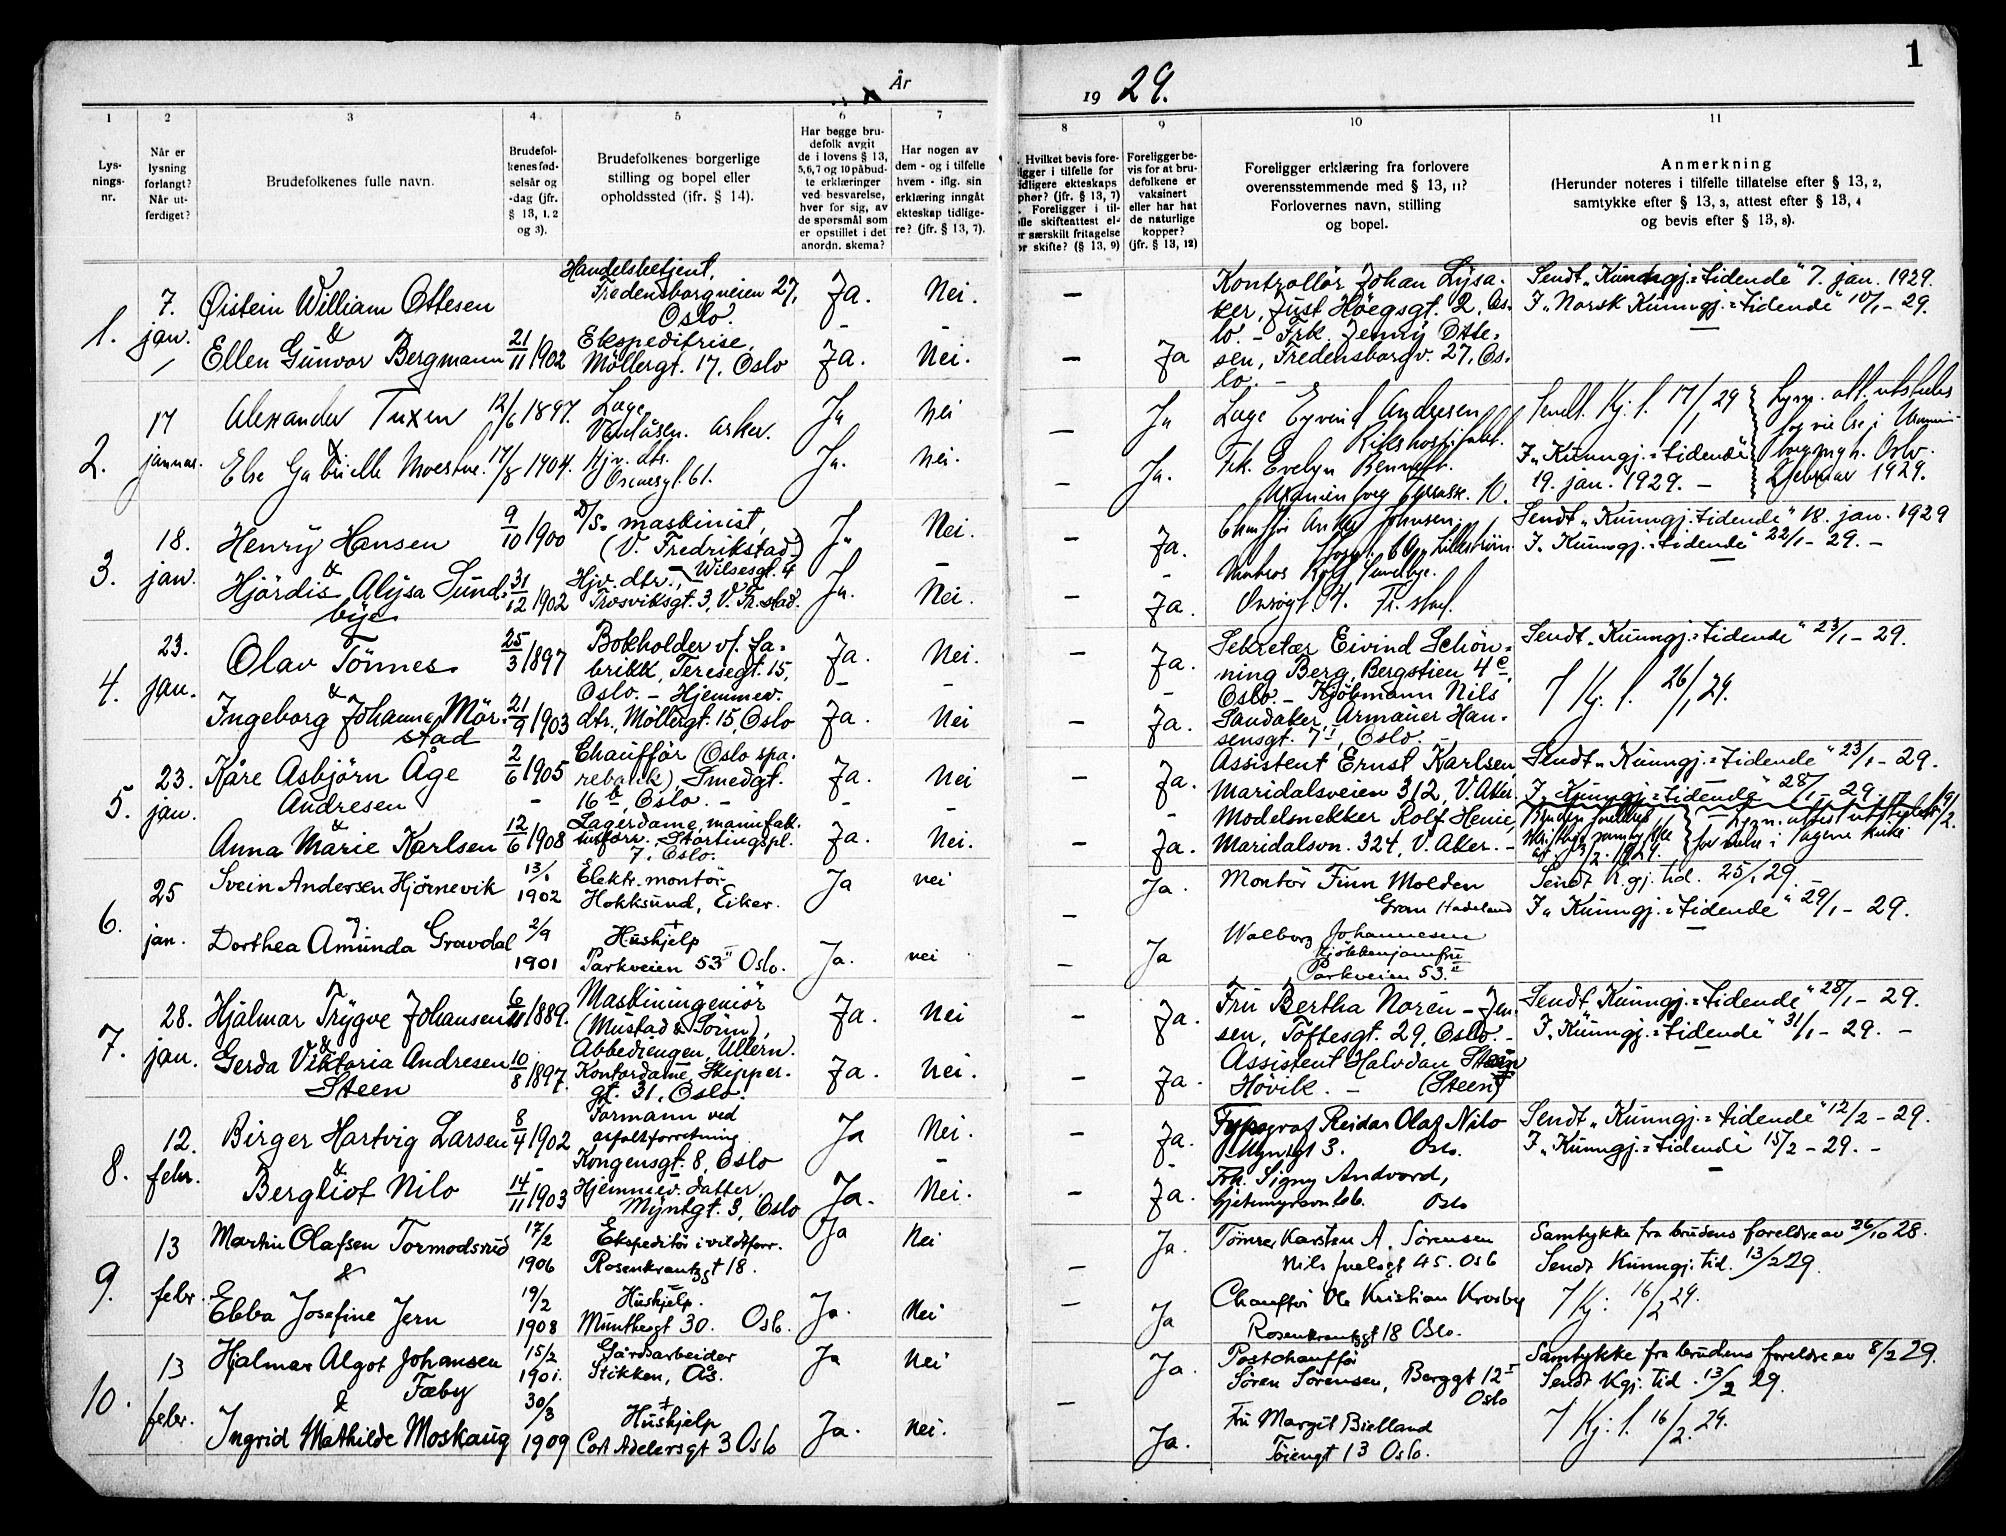 1
År
19 29.
1 2 3 4 5 6 7 8 9 10 11
Lys-
nings-
nr.
Når er
lysning
forlangt?
Når ut-
ferdiget?
Brudefolkenes fulle navn.
Brudefol-
kenes fød-
selsår og
-dag (jfr.
§ 13, 1, 2
og 3).
Brudefolkenes borgerlige
stilling og bopel eller
opholdssted (ifr. § 14).
Har begge bru-
defolk avgit
de i lovens § 13,
5,6,7 og 10 påbud-
te erklæringer
ved besvarelse,
hver for sig, av
de spørsmål som
er opstillet i det
anordn. skema?
Har nogen av
dem - og i tilfelle
hvem - iflg. sin
erklæring inngått
ekteskap tidlige-
re? (jfr. § 13, 7).
Hvilket bevis fore-
ligger i tilfelle for
tidligere ekteskaps
ophør? (jfr. § 13, 7)
Foreligger i til-
felle skifteattest el-
ler særskilt fritagelse
for skifte? (§ 13, 9)
Foreligger be-
vis for at bru-
defolkene er
vaksinert
eller har hat
de naturlige
kopper?
(jfr. § 13, 12)
Foreligger erklæring fra forlovere
overensstemmende med § 13, 11?
Forlovernes navn, stilling
og bopel.
Anmerkning
(Herunder noteres i tilfelle tillatelse efter § 13, 2,
samtykke efter § 13, 3, attest efter § 13, 4
og bevis efter § 13, 8).
1.
7.
jan.
Øistein William Ottesen
&
Ellen Gunvor Bergmann
21/11 1902
Handelsbetjent,
Fredensborgveien 27,
Oslo.
Ekspeditrise,
Möllergt. 17, Oslo
Ja. Nei. –
Ja. Nei. – Ja
Kontrollör Johan Lysa-
ker, Just Höegsgt. 2, Os-
lo. – Frk. Jenny Otte-
sen, Fredensborgv. 27, Os-
lo. –
Sendt „Kunngj.=tidende" 7. jan. 1929.
I „Norsk Kunngj.=tidende" 10/1 – 29.
2.
17
januar.
Alexander Tuxen
&
Else Gabrielle
12/6 1897.
17/8 1904.
Asker.
Hjv. dtr.
Oscarsgt. 61.
Ja Nei – Ja
Ja. Nei. – Ja.
Læge Eyvind Andresen
Rikshospitalet.
Frk. Evelyn Bennett.
10.
Sendt. Kj. t. 17/1 29
I „Kunngj.=tidende"
19. jan. 1929. –
Lysn. att. utstedes
for vielse i
Oslo.
1929.
3.
18.
jan.
Henry Hansen
&
Hjördis Alysa Sund-
bye
9/10 1900
31/12 1902
D/S. maskinist,
(V. Fredrikstad)
Wilsesgt. 4
Hjv. dtr.,
Trosviksgt. 3, V. Fr. stad.
Ja Nei. – Ja.
Ja. Nei. – Ja.
Johnsen,
Lillestrøm
Matros Rolf Sundbye.
4. Fr. stad.
Sendt „Kunngj.=tidende" 18. jan. 1929
I „Kunngj.=tidende" 22/1 – 29. –
4.
23.
jan.
Olav Tönnes
&
Ingeborg Johanne Mör-
stad
25/3 1897
21/9 1903
Bokholder v/. fa-
brikk, Teresegt. 15,
Oslo. – Hjemmev.
dtr., Möllergt. 15, Oslo
Ja. Nei. – Ja.
Ja. Nei – Ja.
Sekretær Eivind Schön-
ning Berg, Bergstien 4 c,
Oslo. – Kjöbmann Nils
Sandaker, Armauer Han-
sensgt. 7 I, Oslo. –
Sendt „Kunngj.=tidende" 23/1 – 29.
I Kj. t. 26/1 29.
5.
23.
jan.
Kåre Asbjörn Åge
Andresen
&
Anna Marie Karlsen
2/6 1905
12/6 1908
Chaufför (Oslo spa-
rebank) Smedgt.
16 b, Oslo. –
Lagerdame, manufak-
turforr. – Stortingspl.
7, Oslo.
Ja. Nei – Ja.
Ja. Nei. – Ja.
Assistent Ernst Karlsen,
Maridalsveien 312, V. Aker.
Modelsnekker Rolf Henie,
Maridalsvn. 324, V. Aker. –
Sendt „Kunngj.=tidende" 23/1 – 29.
I „Kunngj.=tidende" 28/1 – 29.
Brudens foreldres
samtykke
Lysn. attest utstedt 19/2.
for vielse i Sagene kirke
6.
25
jan.
Svein Andersen Hjörnevik
og
Dorthea Amunda Gravdal
13/1
1902
2/9
1901
Elektr. montör
Hokksund, Eiker.
Hushjelp
Parkveien 53 II Oslo.
Ja nei – Ja.
Ja. nei – Ja
Montör Finn Molden
Gran Hadeland
Walborg Johannesen
Kjökkenjomfru
Parkveien 53. II
Sendt K.gj. tid. 25/1 29. –
I „Kunngj.=tidende" 29/1 – 29.
7.
28.
jan.
Hjalmar Trygve Johansen
&
Gerda Viktoria Andresen
Steen
6/11 1889.
10/8 1897.
Maskiningeniör
(Mustad & Sönn),
Abbediengen, Ullern.
Kontordame, Skipper-
gt. 31, Oslo.
Ja. Nei – Ja.
Ja. Nei. – Ja.
Fru Bertha Noren – Jen-
sen, Toftesgt. 29, Oslo. –
Assistent Halvdan Steen
Hövik. – (Steen)
Sendt „Kunngj.=tidende" 28/1 – 29.
I „Kunngj.=tidende" 31/1 – 29. –
8.
12.
febr.
Birger Hartvig Larsen
&
Bergliot Nilo
8/4 1902
14/11 1903
Formann ved
asfaltforretning
Kongensgt. 8, Oslo
Hjemmev. datter,
Myntgt. 3, Oslo
Ja Nei. – Ja.
Ja. Nei. – Ja.
Typograf Reidar Olaf Nilo
Myntgt 3. Oslo.
Frk. Signy Andvord,
Gjetemyrsvn. 66. Oslo
Sendt „Kunngj.=tidende" 12/2 – 29.
I „Kunngj.=tidende" 15/2 – 29. –
9.
13
febr.
Martin Olafsen Tormodsrud
&
Ebba Josefine Jern
17/2
1906
19/2
1908
Ekspeditör i vildtforr.
Rosenkrantzgt 18.
Hushjelp.
Munthesgt 30. Oslo.
Ja Nei – Ja.
Ja. Nei – Ja
Tömrer Karsten A. Sörensen
Nils Juelsgt 45. Oslo
Chaufför Ole Kristian Krosby
Rosenkrantzgt 18 Oslo.
Samtykke fra brudens foreldre av 26/10 28.
Sendt Kunngj. tid. 13/2 29.
I Kj. 16/2 29.
10.
13
febr.
Hjalmar Algot Johansen
Fæby
&
Ingrid Mathilde Moskaug
15/2
1901.
30/3
1909
Gårdsarbeider
Stikken, Ås.
Hushjelp
Cort Adelersgt 3 Oslo
Ja Nei Ja.
Ja. Nei. – Ja.
Postchaufför
Sören Sörensen, Berggt 12 I
Oslo
Fru Margit Bielland
Töiengt 13 Oslo.
Samtykke fra brudens foreldre av 8/2 29.
Sendt Kgj. tid. 13/2 29.
I Kj. t. 16/2. 29.